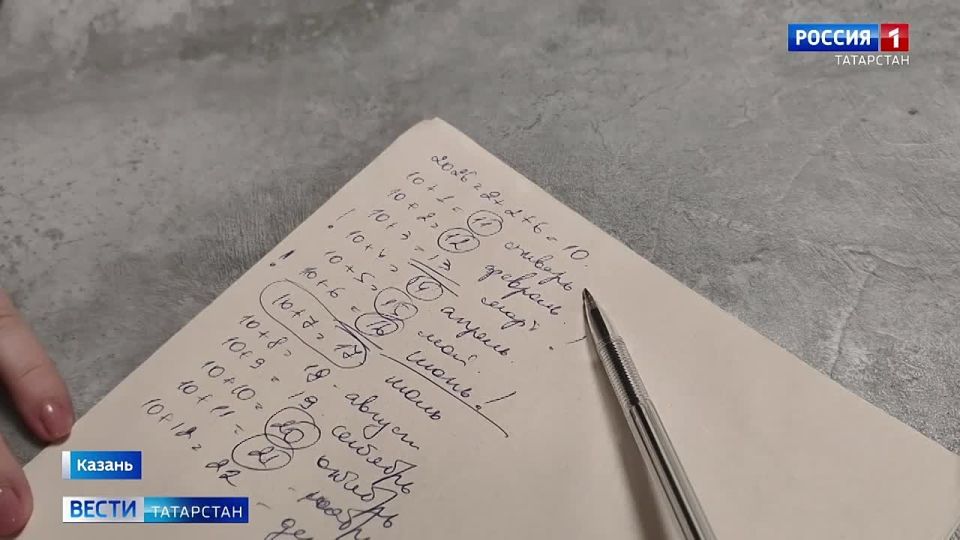 РОССИЯ 1
ТАТАРСТАН
2026 = 2+2+6 = 10.
10+1 = 11 январь
10+2 = 12 февраль
! 10+3 = 13 март !
10+4 = 14 апрель.
! 10+5 = 15 май.
10+6 = 16 июнь!
10+7 = 17 июль
10+8 = 18 - август
10+9 = 19. сентябрь
10+10 = 20 октябрь
10+11 = 21 - ноябрь
10+12 = 22 - де
Казань
ВЕСТИ ТАТАРСТАН